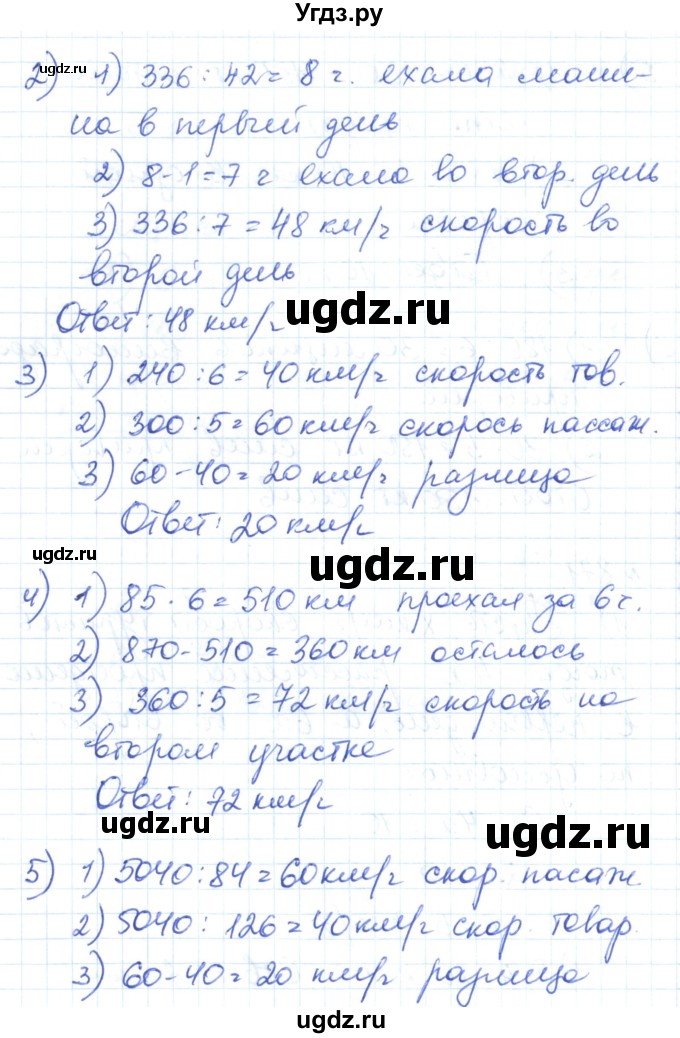 Угдз.ру
2) 1) 336 : 42 = 8 г. ехала маши-
на в первый день
2) 8-1=7 г ехала во втор. день
3) 336 : 7 = 48 км/г скорость во
второй день
ugdz.ru
Ответ: 48 км/г
3) 1) 240 : 6 = 40 км/г скорость тов.
2) 300 : 5 = 60 км/г скорось пассаж.
3) 60-40=20 км/г разница
Ответ: 20 км/г
ugdz.ru
ugdz.ru
4) 1) 85 · 6 = 510 км проехал за 6 г.
2) 870-510=360 км осталось
3) 360 : 5 = 72 км/г скорость на
втором участке
Ответ: 72 км/г
ugdz.ru
ugdz.ru
5) 1) 5040 : 84 = 60 км/г скор. пасаж.
2) 5040 : 126 = 40 км/г скор товар.
3) 60-40=20 км/г разница
ugdz.ru